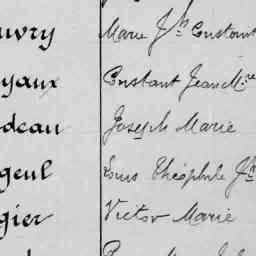 uvry Marie Jh Constant
yaux Constant Jean M.re
deau Joseph Marie
geul Louis Théophile Jh
gier Victor Marie